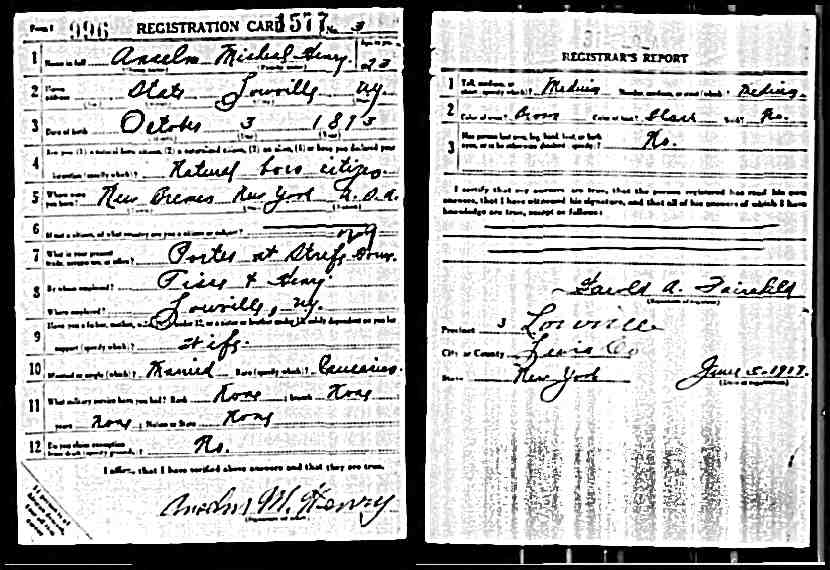 Form 1 996 REGISTRATION CARD 1577 No. 3
1 Name in full Anselm Michael Henry Age in yrs. 23
2 Home address State Lowville NY
3 Date of birth October 3 1893
4 Are you (1) a natural born citizen, (2) a naturalized citizen, (3) an alien, (4) or have you declared your
intention (specify which)? Natural born citizen.
5 Where were you born? New Bremen New York U.S.A.
6 If not a citizen, of what country are you a citizen or subject?
7 What is your present trade, occupation, or office? Porter at
8 By whom employed? & Henry
Where employed? Lowville, NY.
9 Have you a father, mother, wife, child under 12, or a sister or brother under 12, solely dependent on you for
support (specify which)? Wife.
10 Married or single (which)? Married Race (specify which)? Caucasian.
11 What military service have you had? Rank None ; branch None
years None ; Nation or State None
12 Do you claim exemption from draft (specify grounds)? No.
I affirm that I have verified above answers and that they are true.
Anselm M. Henry
(Signature or mark)
If person is of African descent, tear off this corner
REGISTRAR'S REPORT
1 Tall, medium, or short (specify which)? Medium Slender, medium, or stout (which)? Medium.
2 Color of eyes? Brown Color of hair? Black Bald? No.
3 Has person lost arm, leg, hand, foot, or both eyes, or is he otherwise disabled (specify)? No.
I certify that my answers are true, that the person registered has read his own
answers, that I have witnessed his signature, and that all of his answers of which I have
knowledge are true, except as follows:
Harold A. Fairchild
(Signature of registrar)
Precinct 3 Lowville
City or County Lewis Co
State New York June 5-1917.
(Date of registration)